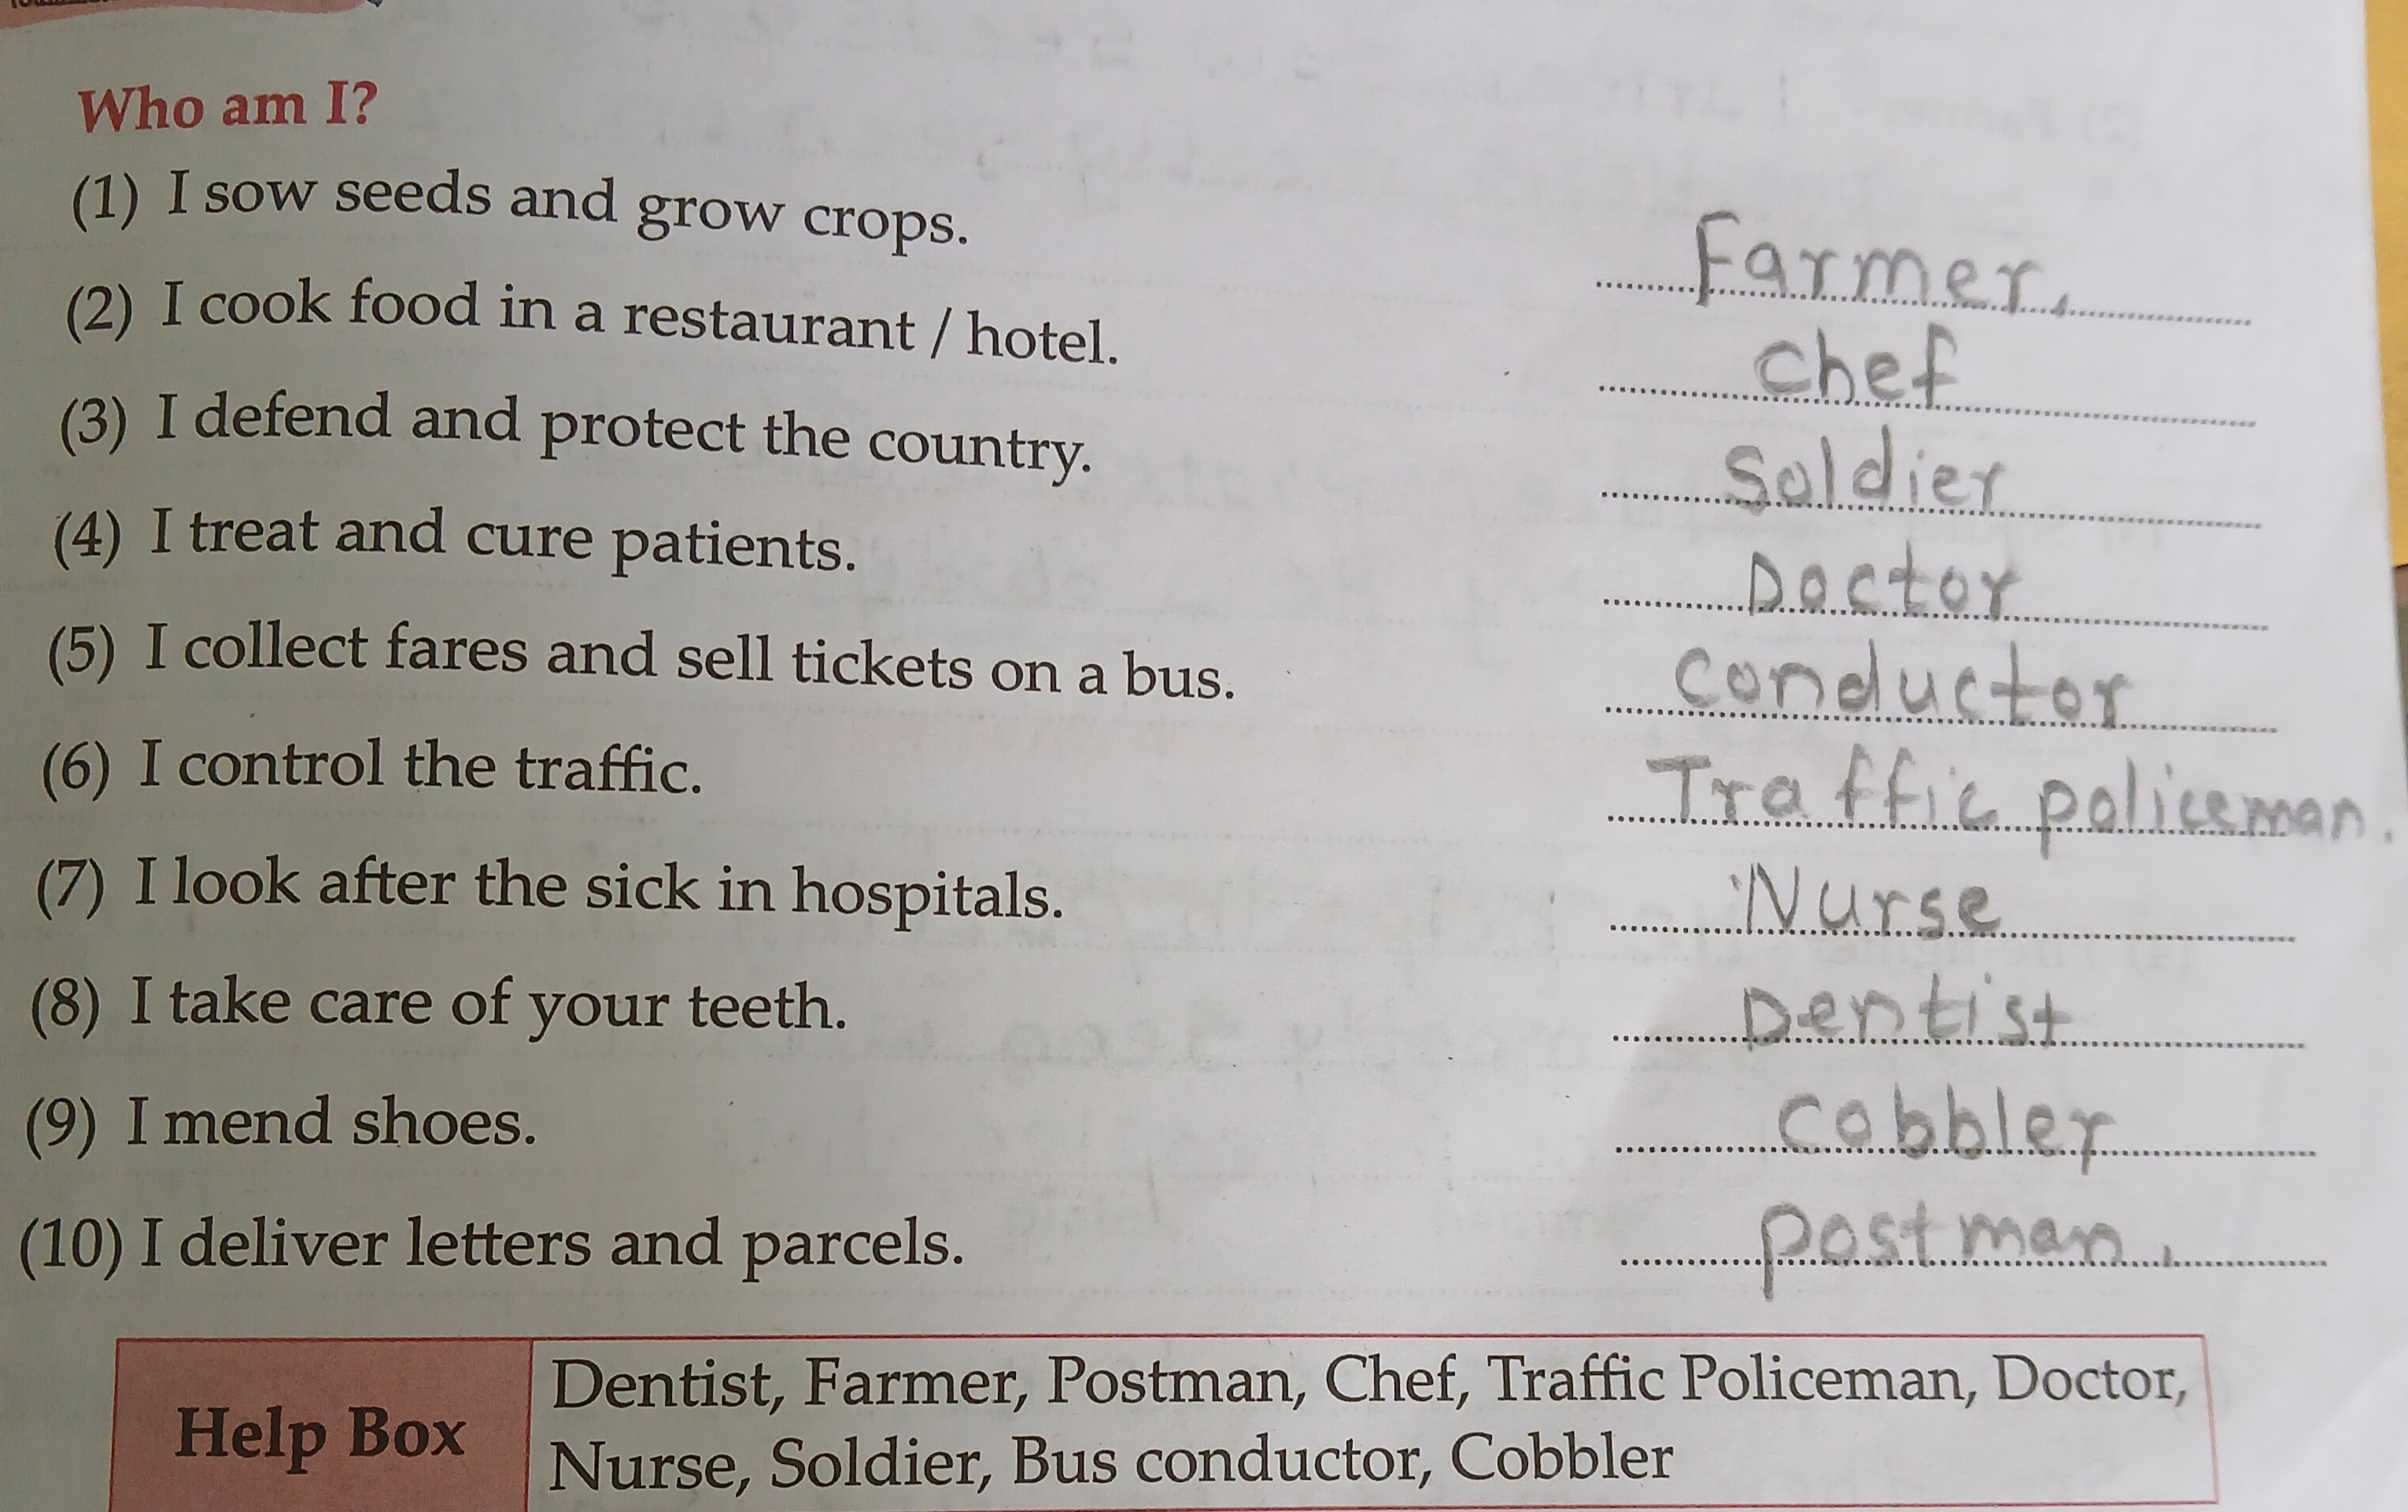 Who am I?
(1) I sow seeds and grow crops. Farmer.
(2) I cook food in a restaurant / hotel. chef
(3) I defend and protect the country. Soldier
(4) I treat and cure patients. Doctor
(5) I collect fares and sell tickets on a bus. conductor
(6) I control the traffic. Traffic policeman.
(7) I look after the sick in hospitals. Nurse
(8) I take care of your teeth. Dentist
(9) I mend shoes. cobbler
(10) I deliver letters and parcels. postman.
Help Box
Dentist, Farmer, Postman, Chef, Traffic Policeman, Doctor,
Nurse, Soldier, Bus conductor, Cobbler